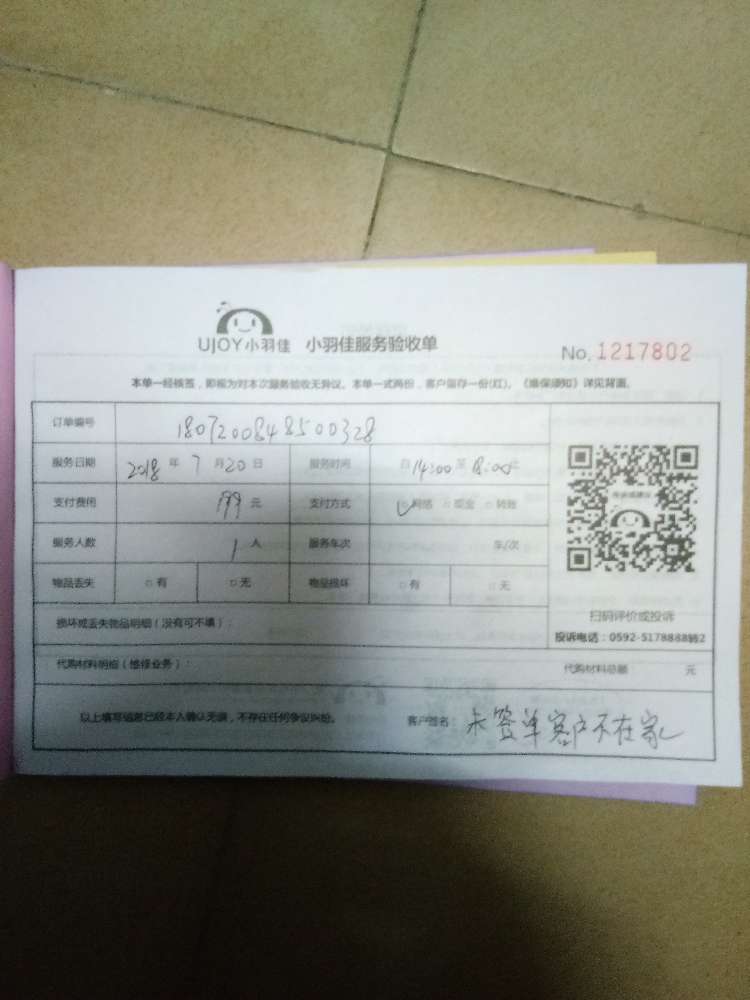 UJOY小羽佳 小羽佳服务验收单 No. 1217802
本单一经核签，即视为对本次服务验收无异议。本单一式两份，客户留存一份(红)。《维保须知》详见背面。
订单编号 1807200848500328
服务日期 2018 年 7 月 20 日 服务时间 自 14:00 至 18:00 止
支付费用 199 元 支付方式 ☑网络 □现金 □转账
服务人数 1 人 服务车次 车/次
物品丢失 □有 □无 物品损坏 □有 □无
扫码评价或投诉
损坏或丢失物品明细（没有可不填）：
投诉电话：0592-5178888转2
代购材料明细（维修业务）： 代购材料总额 元
以上填写信息已经本人确认无误，不存在任何争议纠纷。 客户签名： 未签单客户不在家